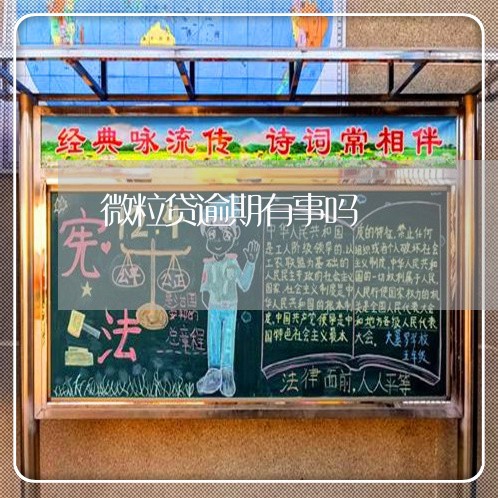 经典咏流传 诗词常相伴
微粒贷逾期有事吗
宪
法
公平
公正
总章程
中华人民共和国
是工人阶级领导的,以
工农联盟为基础的
人民民主专政的社会主义
国家,社会主义制度是中
华人民共和国的根本制
度,中国共产党领导是中
国特色社会主义最本
质的特征,禁止任何
组织或者个人破坏社会
主义制度,中华人民共和
国的一切权利属于人民
人民行使国家权力的机
关是全国人民代表大会
和地方各级人民代表
大会.
五年级
法律面前,人人平等